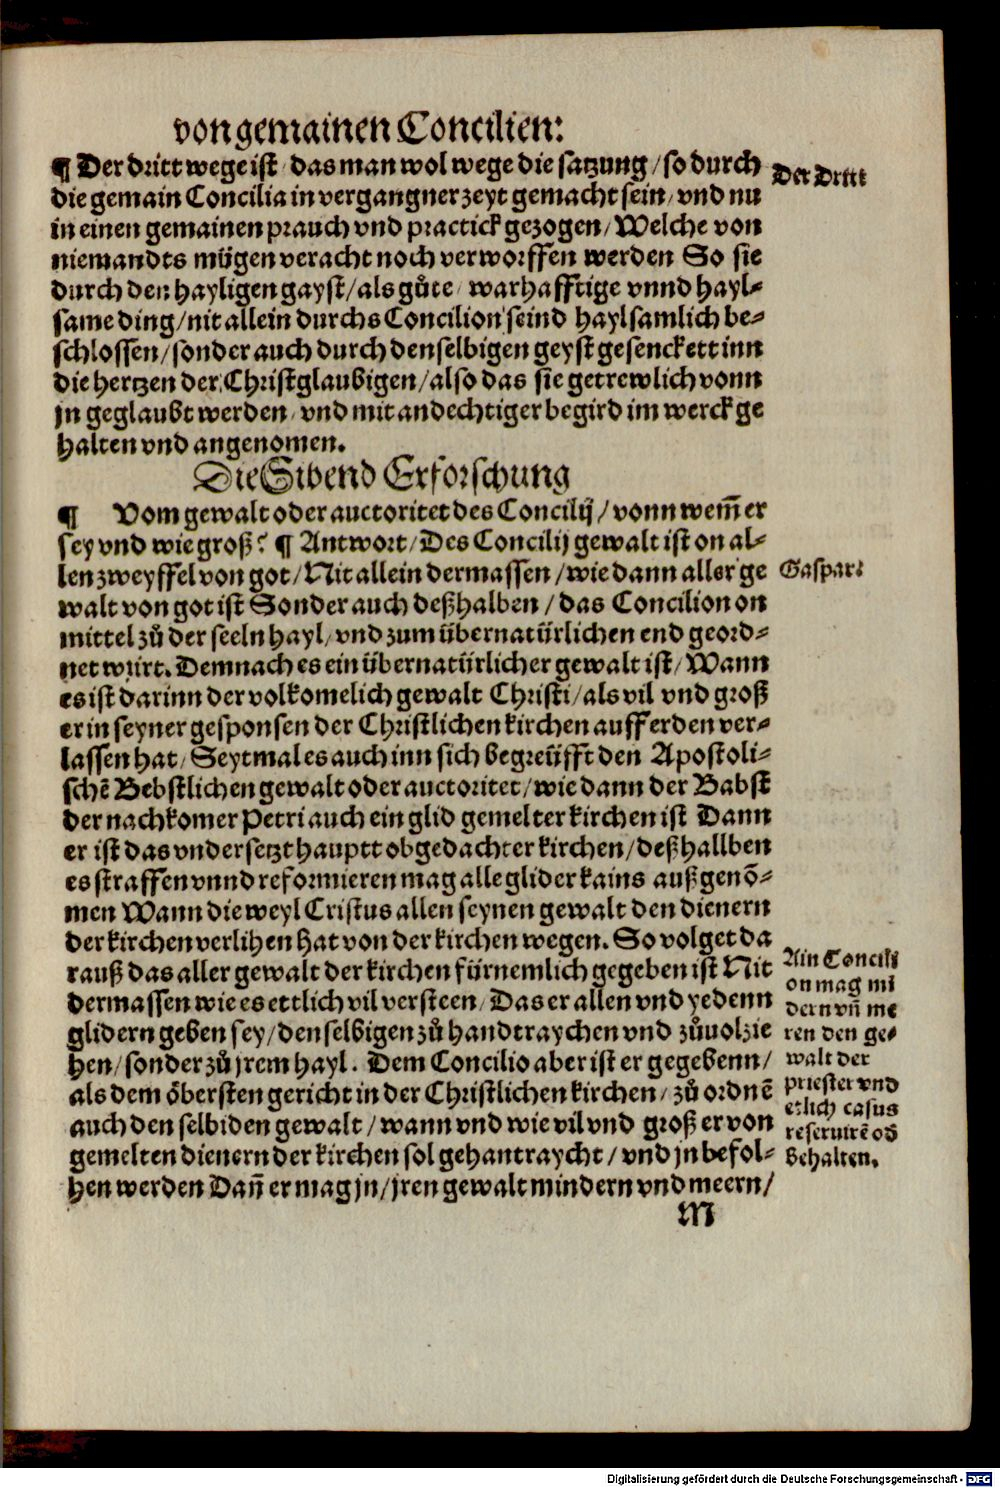 von gemainen Concilien:
¶ Der dritt wege ist / das man wol wege die satzung / so durch
Der Dritt
die gemain Concilia in vergangner zeyt gemacht sein / vnd nu
in einen gemainen prauch vnd practick gezogen / Welche von
niemandts mügen veracht noch verworffen werden So sie
durch den hayligen gayst / als gůte / warhafftige vnnd hayl-
same ding / nit allein durchs Concilion seind haylsamlich be-
schlossen / sonder auch durch denselbigen geyst gesenckett inn
die hertzen der Christglaubigen / also das sie getrewlich vonn
jn geglaubt werden / vnd mit andechtiger begird im werck ge
halten vnd angenomen.
Die Sibend Erforschung
¶ Vom gewalt oder auctoritet des Concilij / vonn wem̄ er
sey vnd wie groß? ¶ Antwort / Des Concilij gewalt ist on al-
len zweyffel von got / Nit allein dermassen / wie dann aller ge
Gaspar:
walt von got ist Sonder auch deßhalben / das Concilion on
mittel zů der seeln hayl / vnd zum übernatürlichen end geord-
net würt. Demnach es ein übernatürlicher gewalt ist / Wann
es ist darinn der volkomelich gewalt Christi / als vil vnd groß
er in seyner gesponsen der Christlichen kirchen auff erden ver-
lassen hat / Seytmal es auch inn sich begreüfft den Apostoli-
schē Bebstlichen gewalt oder auctoritet / wie dann der Babst
der nachkomer Petri auch ein glid gemelter kirchen ist Dann
er ist das vndersetzt hauptt obgedachter kirchen / deßhallben
es straffen vnnd reformieren mag alle glider kains außgenō-
men Wann die weyl Cristus allen seynen gewalt den dienern
der kirchen verlihen hat von der kirchen wegen. So volget da
rauß das aller gewalt der kirchen fürnemlich gegeben ist Nit
dermassen wie es ettlich vil versteen / Das er allen vnd yedenn
glidern geben sey / denselbigen zů handtraychen vnd zůuolzie
hen / sonder zů jrem hayl. Dem Concilio aber ist er gegebenn /
als dem öbersten gericht in der Christlichen kirchen / zů ordnē
auch den selbiden gewalt / wann vnd wie vil vnd groß er von
gemelten dienern der kirchen sol gehantraycht / vnd jn befol-
hen werden Dan̄ er mag jn / jren gewalt mindern vnd meern /
Ain Concili
on mag mi
dern vn̄ me
ren den ge-
walt der
priester vnd
etlich casus
reseruirē od
behalten.
M
Digitalisierung gefördert durch die Deutsche Forschungsgemeinschaft - DFG